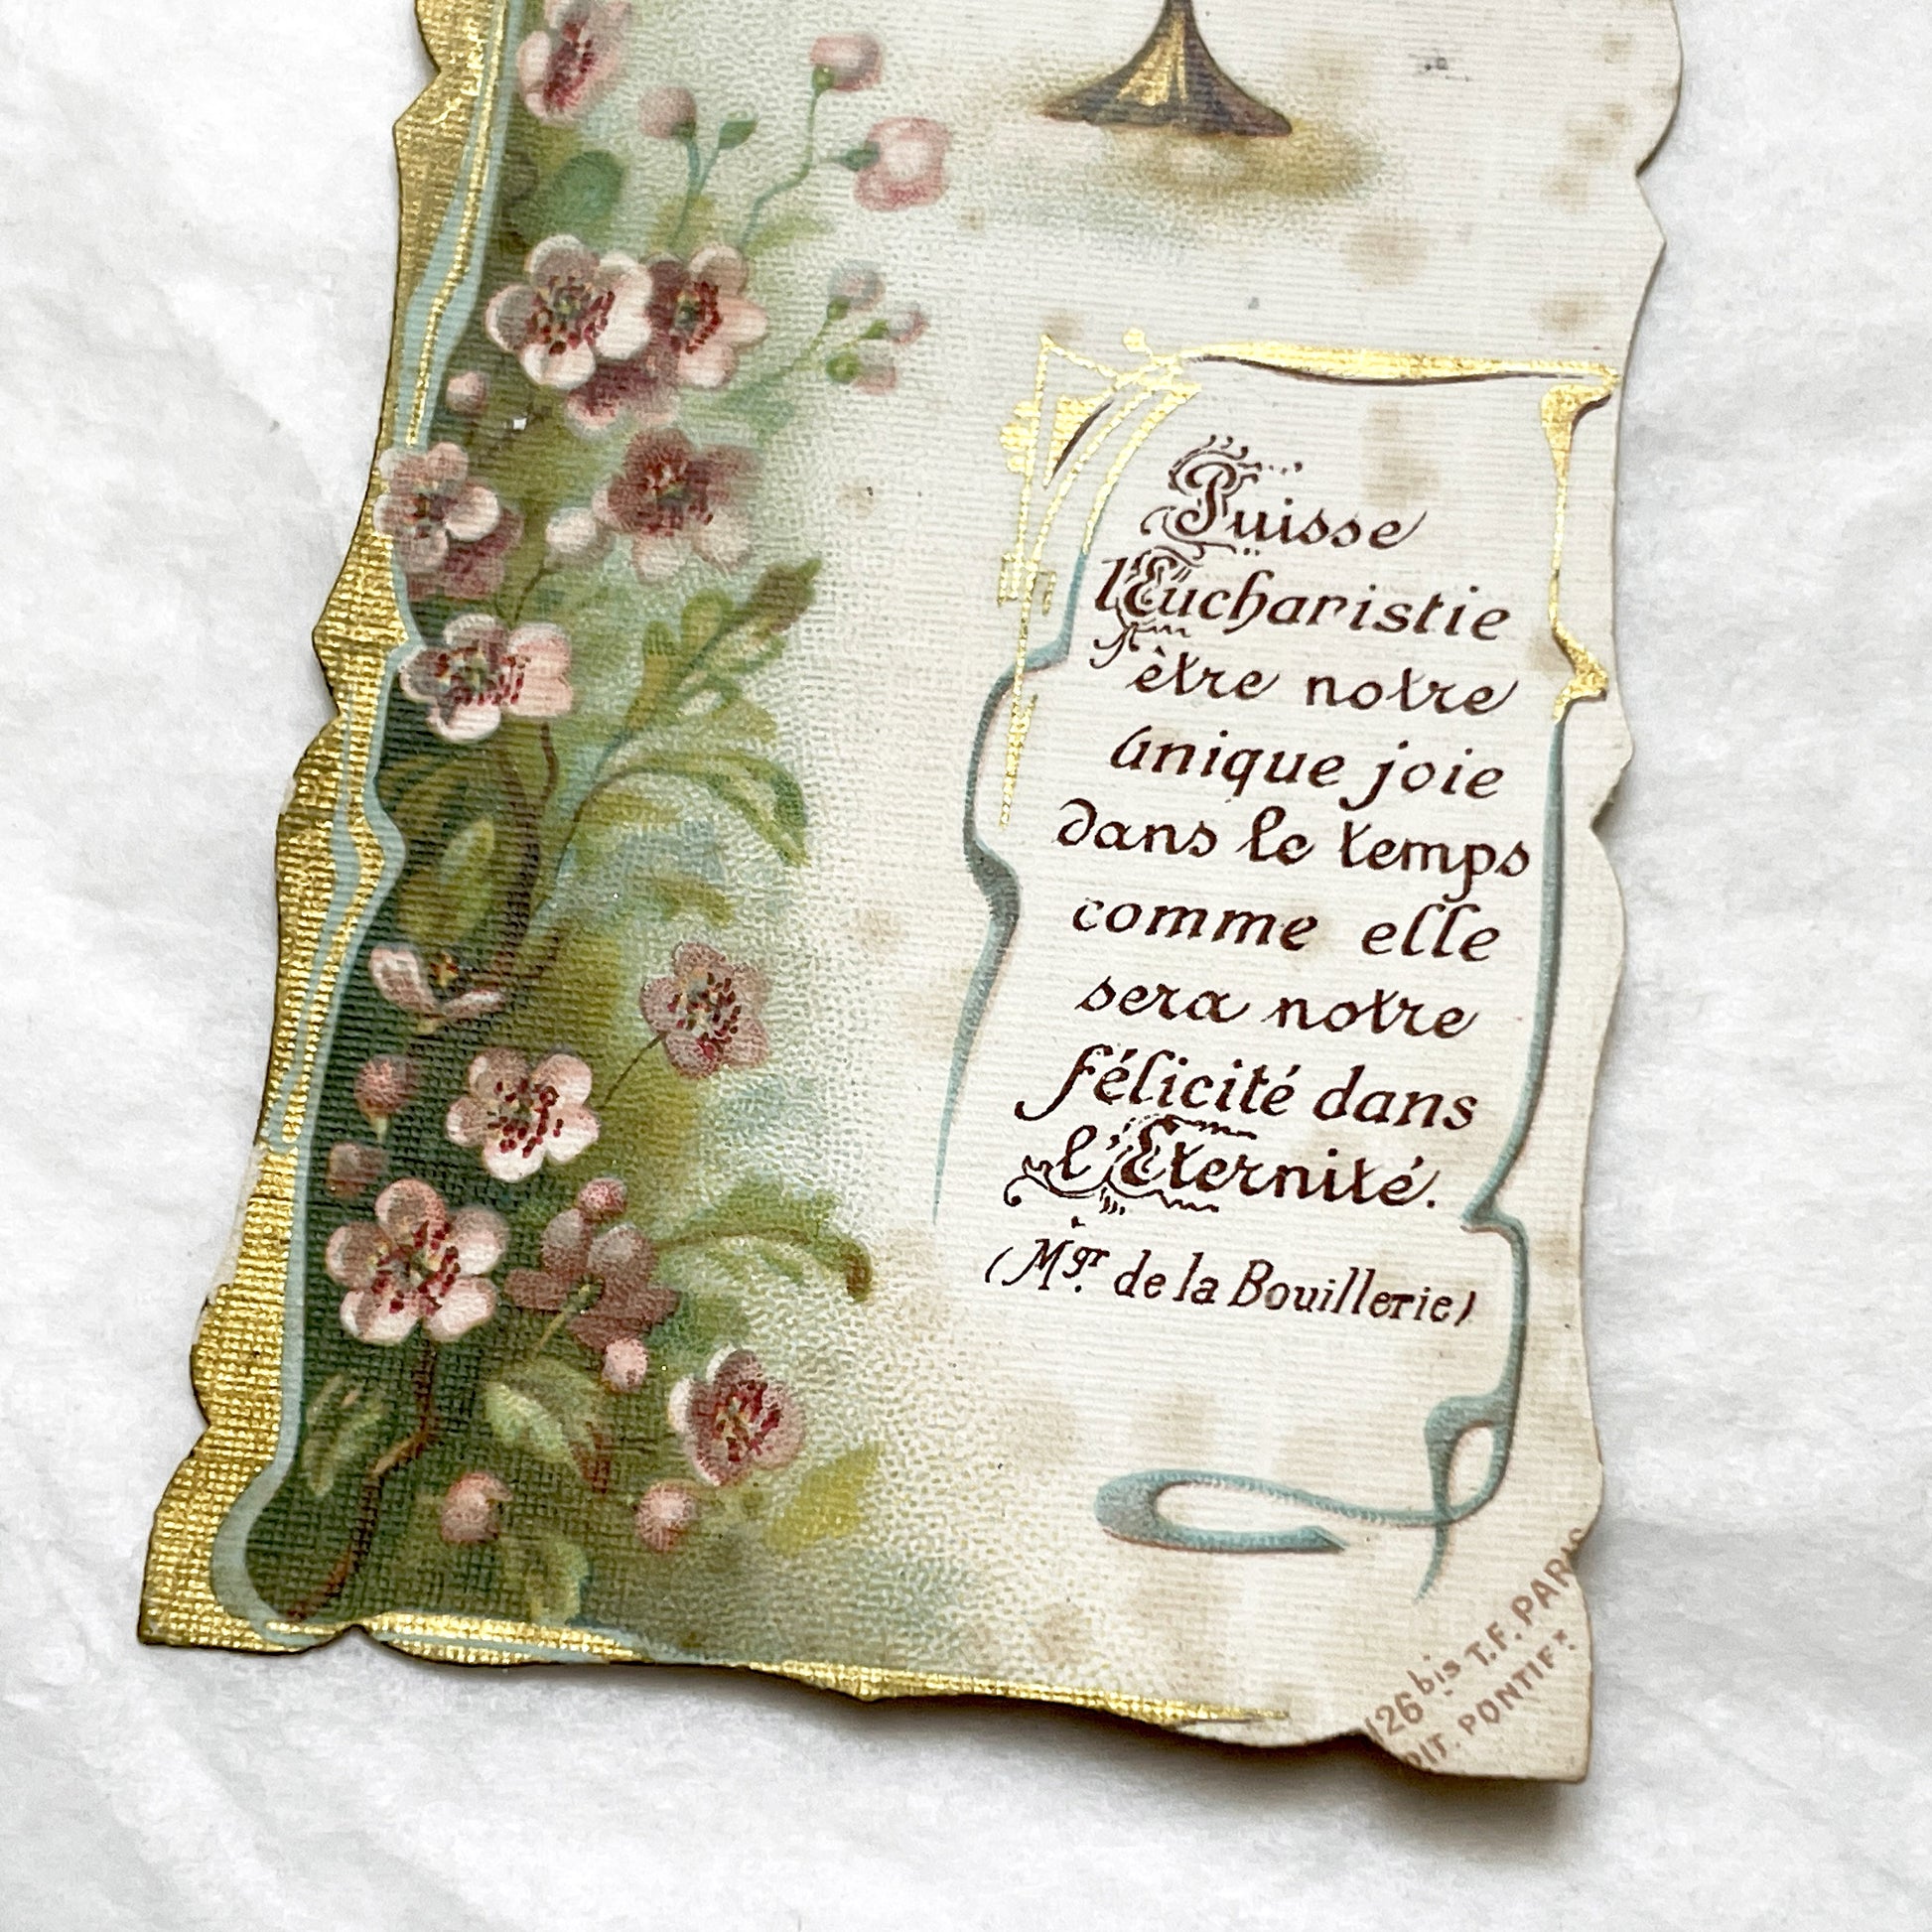 Puisse
l'Eucharistie
être notre
unique joie
dans le temps
comme elle
sera notre
félicité dans
l'Eternité.
(Mgr. de la Bouillerie)
126bis T.F. PARIS
DIT. PONTIFx